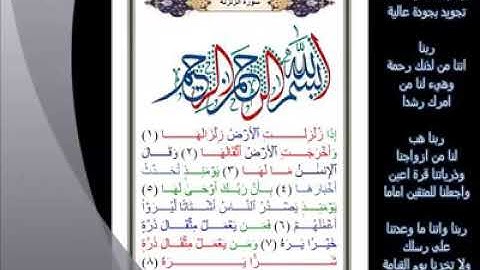 سورة الزلزلة
بسم الله الرحمن الرحيم
إِذَا زُلْزِلَتِ ٱلْأَرْضُ زِلْزَالَهَا (١)
وَأَخْرَجَتِ ٱلْأَرْضُ أَثْقَالَهَا (٢) وَقَالَ
ٱلْإِنسَٰنُ مَا لَهَا (٣) يَوْمَئِذٍ تُحَدِّثُ
أَخْبَارَهَا (٤) بِأَنَّ رَبَّكَ أَوْحَىٰ لَهَا (٥)
يَوْمَئِذٍ يَصْدُرُ ٱلنَّاسُ أَشْتَاتًا لِّيُرَوْا۟
أَعْمَٰلَهُمْ (٦) فَمَن يَعْمَلْ مِثْقَالَ ذَرَّةٍ
خَيْرًا يَرَهُ (٧) وَمَن يَعْمَلْ مِثْقَالَ ذَرَّةٍ
شَرًّا يَرَهُ (٨)
تجويد بجودة عالية
ربنا
اتنا من لدنك رحمة
وهيء لنا من
امرك رشدا
ربنا هب
لنا من ازواجنا
وذرياتنا قرة اعين
واجعلنا للمتقين اماما
ربنا واتنا ما وعدتنا
على رسلك
ولا تخزنا يوم القيامة